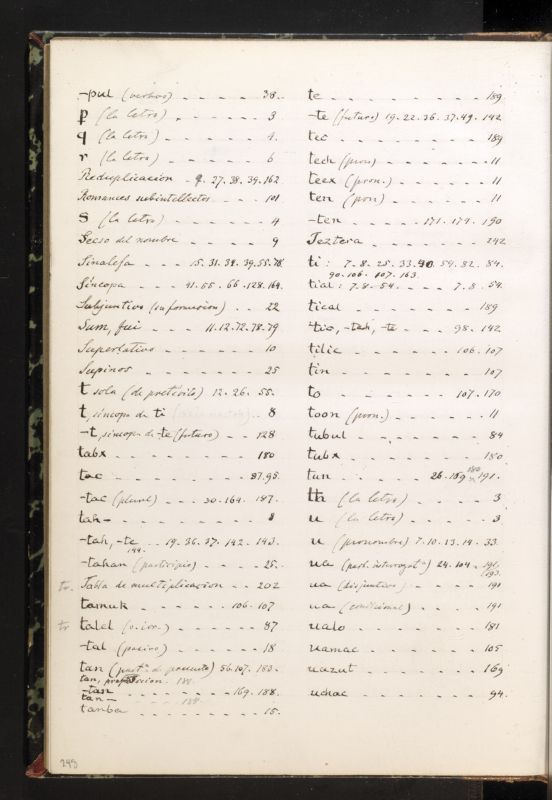 -pul (verbos) - - - - - 38.
p (la letra) - - - - - 3
q (la letra) - - - - - 4.
r (la letra) - - - - - 6
Reduplicacion - 9. 27. 38. 39. 162
Romances subintellectos - - - 101
S (la letra) - - - - - 4
Secso del nombre - - - - 9
Sinalefa - - - 15. 31. 38. 39. 55. 78.
Síncopa - - - 41. 55. 66. 128. 164.
Subjuntivo (su formacion) - - 22
Sum, fui - - - 11. 12. 72. 78. 79
Superlativo - - - - - 10
Supinos - - - - - 25
t sola (de pretérito) 12. 26. 55.
t, síncopa de ti - - 8
-t, síncopa de -te (futuro) - - 128
tabx - - - - - 180
tac - - - - - 87. 95.
-tac (plural) - - - 30. 164. 187.
tah- - - - - - 8
-tah, -te - - 19. 36. 37. 142. 143.
144.
-tahan (participio) - - - 25.
tr. Tabla de multiplicacion - - 202
tamuk - - - - - 106. 107
tr talel - - - - - 87
-tal (pasivo) - - - - 18
tan (part.ª de presente) 56. 107. 183.
tan, preposicion. 188.
-tan - - - - - 169. 188.
tan- - - - 188
tanba - - - - - 15.
te - - - - - 189
-te (futuro) 19. 22. 36. 37. 49. 142
tec - - - - - 189
tech (pron) - - - - - 11
teex (pron.) - - - - - 11
ten (pron) - - - - - 11
-ten - - - - - 171. 179. 190
Teztera - - - - - 242
ti: 7. 8. 25. 33. 40. 54. 82. 84.
90. 106. 107. 163.
tial: 7. 8. 54. - - - - 7. 8. 54.
tical - - - - - 189
-tic, -tah, -te - - - 98. 142
tilic - - - - - 106. 107
tin - - - - - 107
to - - - - - 107. 170
toon (pron.) - - - - - 11
tubul - - - - - 84
tubx - - - - - 180
tun - - - - - 26. 189. 191.
180
th (la letra) - - - - - 3
u (la letra) - - - - - 3
u (pronombre) 7. 10. 13. 14. 33.
ua (part. interrogat.ª) 24. 104. 191.
193.
ua (disjuntiva) - - - - 191
ua (condicional) - - - - 191
ualo - - - - - 181
uamac - - - - - 105
uazut - - - - - 169
uchac - - - - - 94.
243